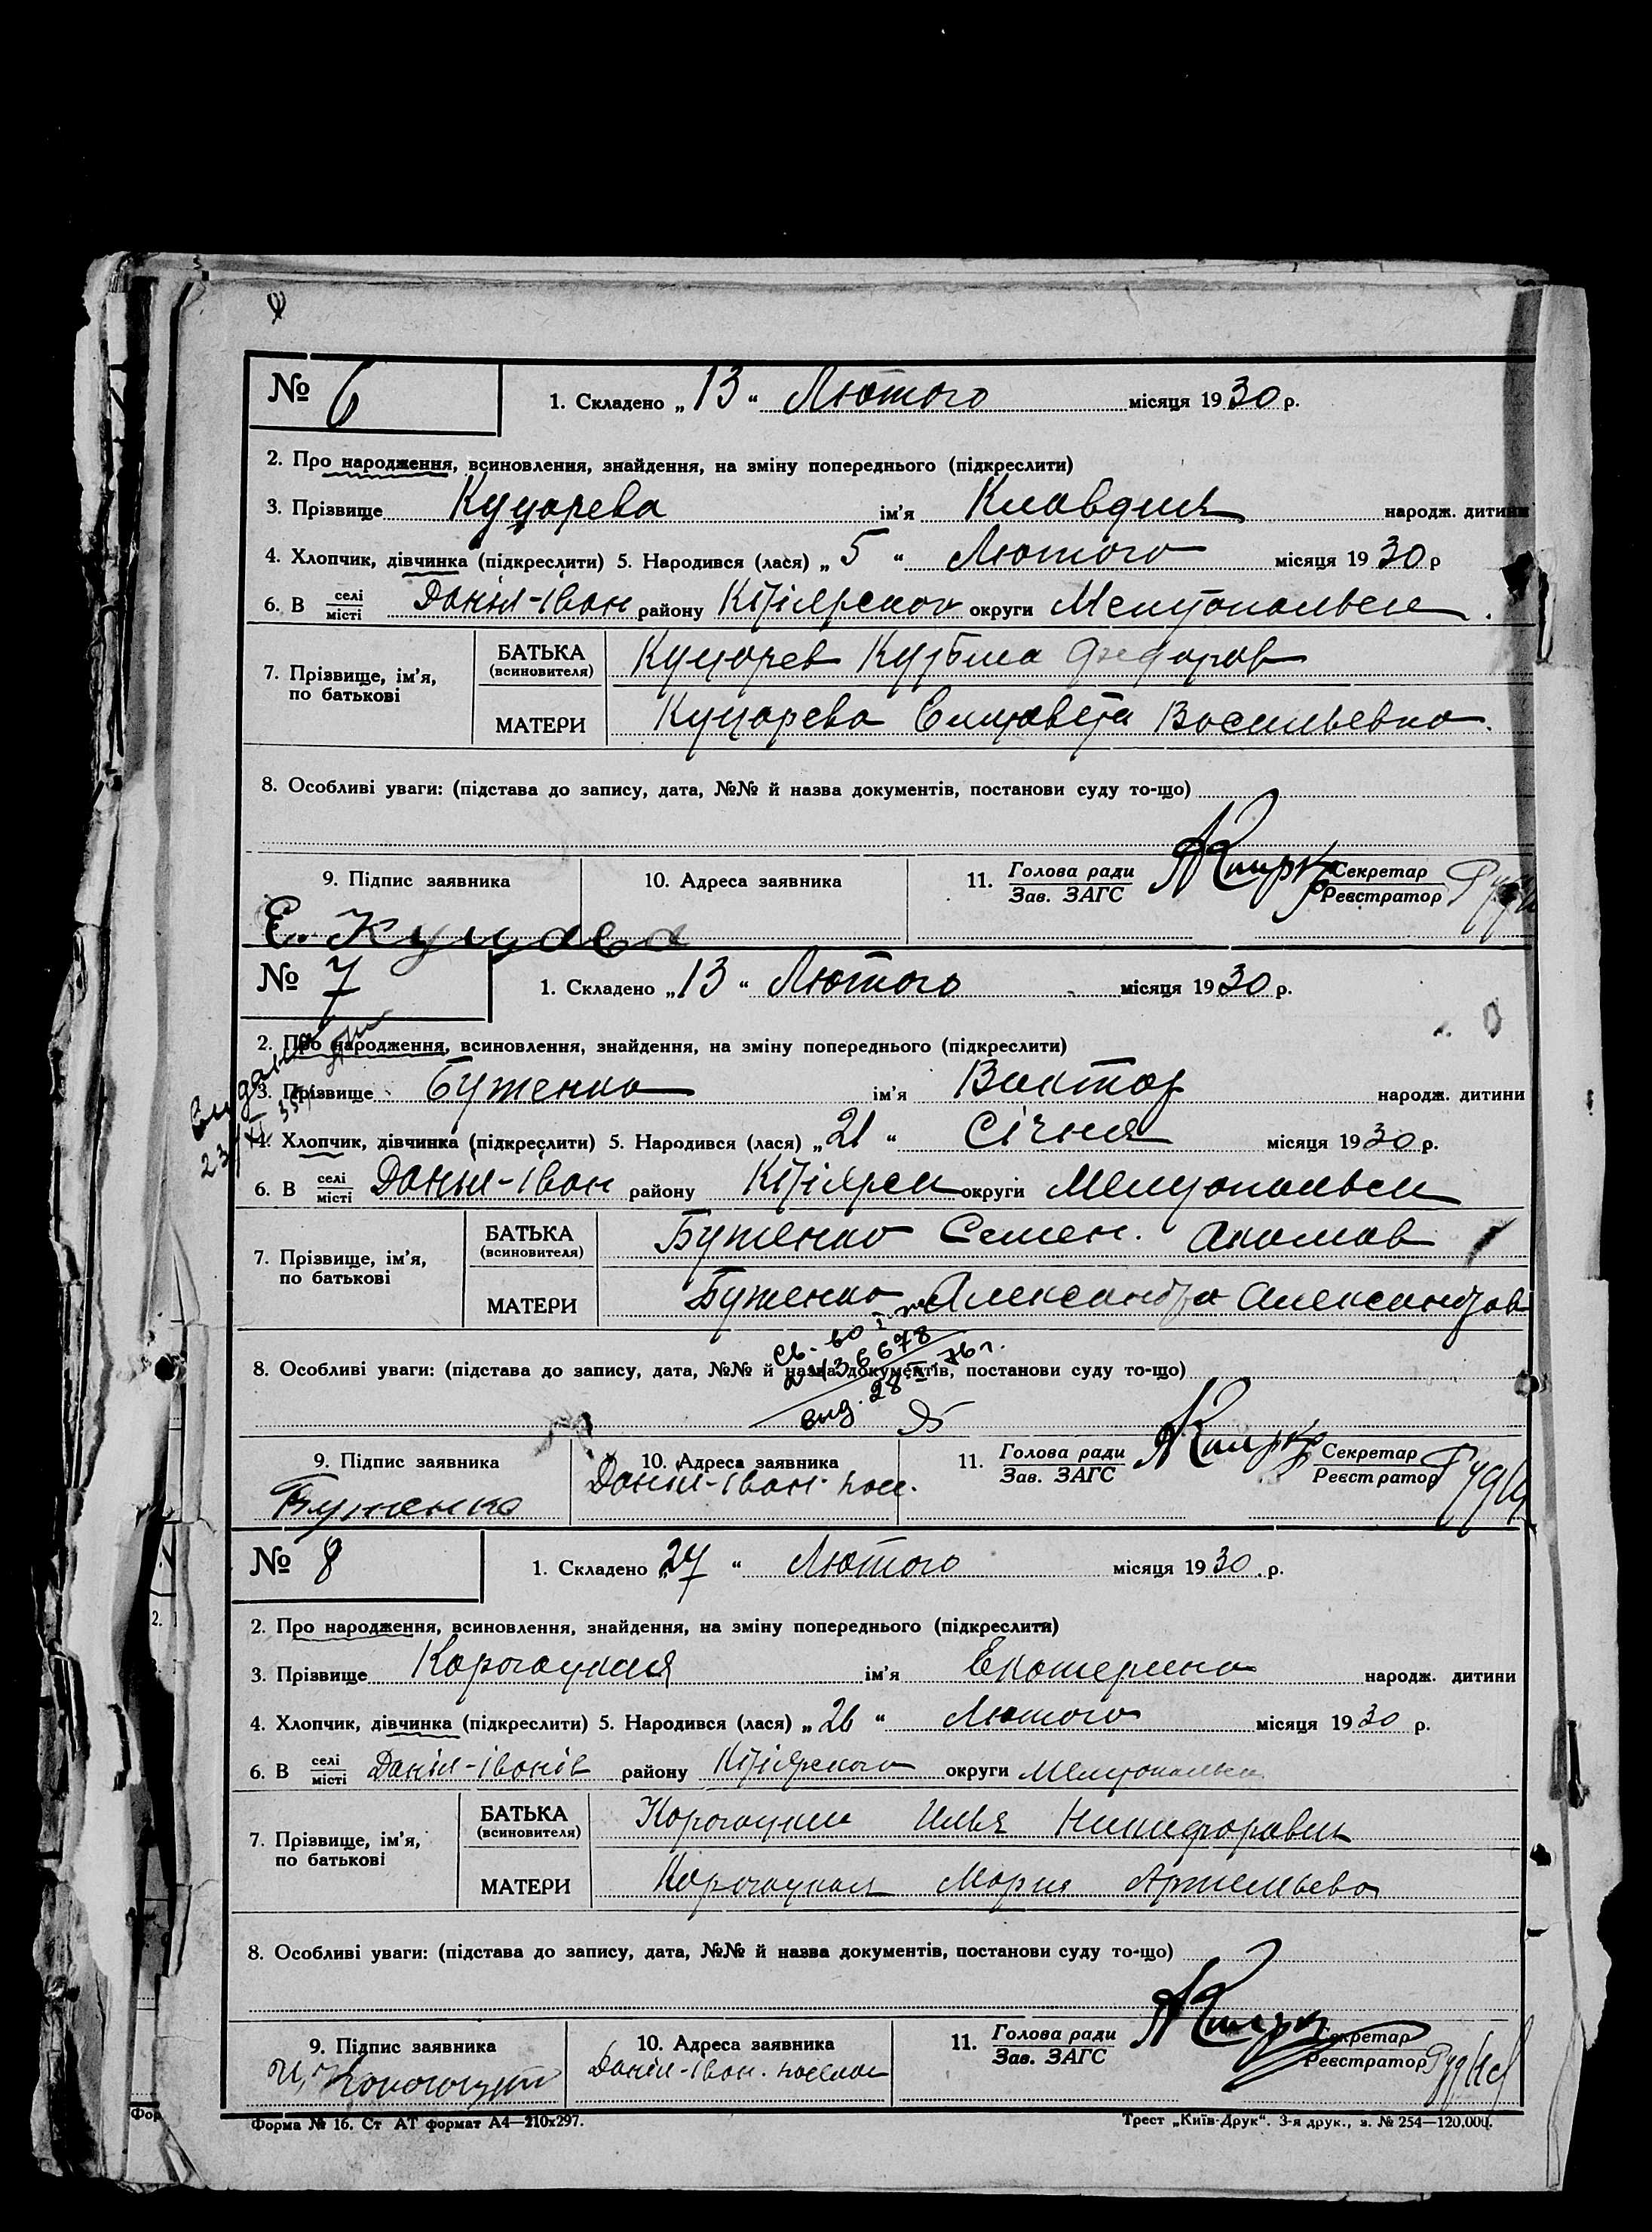 № 6
1. Складено „13“ Лютого місяця 1930 р.
2. Про народження, всиновлення, знайдення, на зміну попереднього (підкреслити)
3. Прізвище Куцарева ім'я Клавдия народж. дитини
4. Хлопчик, дівчинка (підкреслити) 5. Народився (лася) „5“ Лютого місяця 1930 р
6. В селі/місті Даніл-Іван району округи
7. Прізвище, ім'я, по батькові
БАТЬКА (всиновителя) Куцарев Кузьма Федоров
МАТЕРИ Куцарева Елизавета Васильевна.
8. Особливі уваги: (підстава до запису, дата, №№ й назва документів, постанови суду то-що)
9. Підпис заявника 10. Адреса заявника 11. Голова ради/Зав. ЗАГС Секретар/Реєстратор
Е.
№ 7
1. Складено „13“ Лютого місяця 1930 р.
2. Про народження, всиновлення, знайдення, на зміну попереднього (підкреслити)
3. Прізвище Буженко ім'я Виктор народж. дитини
4. Хлопчик, дівчинка (підкреслити) 5. Народився (лася) „21“ Січня місяця 1930 р.
6. В селі/місті Даніл-Іван району округи
7. Прізвище, ім'я, по батькові
БАТЬКА (всиновителя) Буженко Семен.
МАТЕРИ Буженко Александра Александров
8. Особливі уваги: (підстава до запису, дата, №№ й назва документів, постанови суду то-що)
9. Підпис заявника 10. Адреса заявника 11. Голова ради/Зав. ЗАГС Секретар/Реєстратор
Буженко Даніл-Іван.
№ 8
1. Складено „27“ Лютого місяця 1930 р.
2. Про народження, всиновлення, знайдення, на зміну попереднього (підкреслити)
3. Прізвище ім'я Екатерина народж. дитини
4. Хлопчик, дівчинка (підкреслити) 5. Народився (лася) „26“ Лютого місяця 1930 р.
6. В селі/місті Даніл-Іванів району округи
7. Прізвище, ім'я, по батькові
БАТЬКА (всиновителя) Илья Никифорович
МАТЕРИ Мария
8. Особливі уваги: (підстава до запису, дата, №№ й назва документів, постанови суду то-що)
9. Підпис заявника 10. Адреса заявника 11. Голова ради/Зав. ЗАГС Секретар/Реєстратор
Даніл-Іван.
Форма № 16. Ст АТ формат А4—210х297. Трест „Київ-Друк“. 3-я друк., з. № 254—120.000.